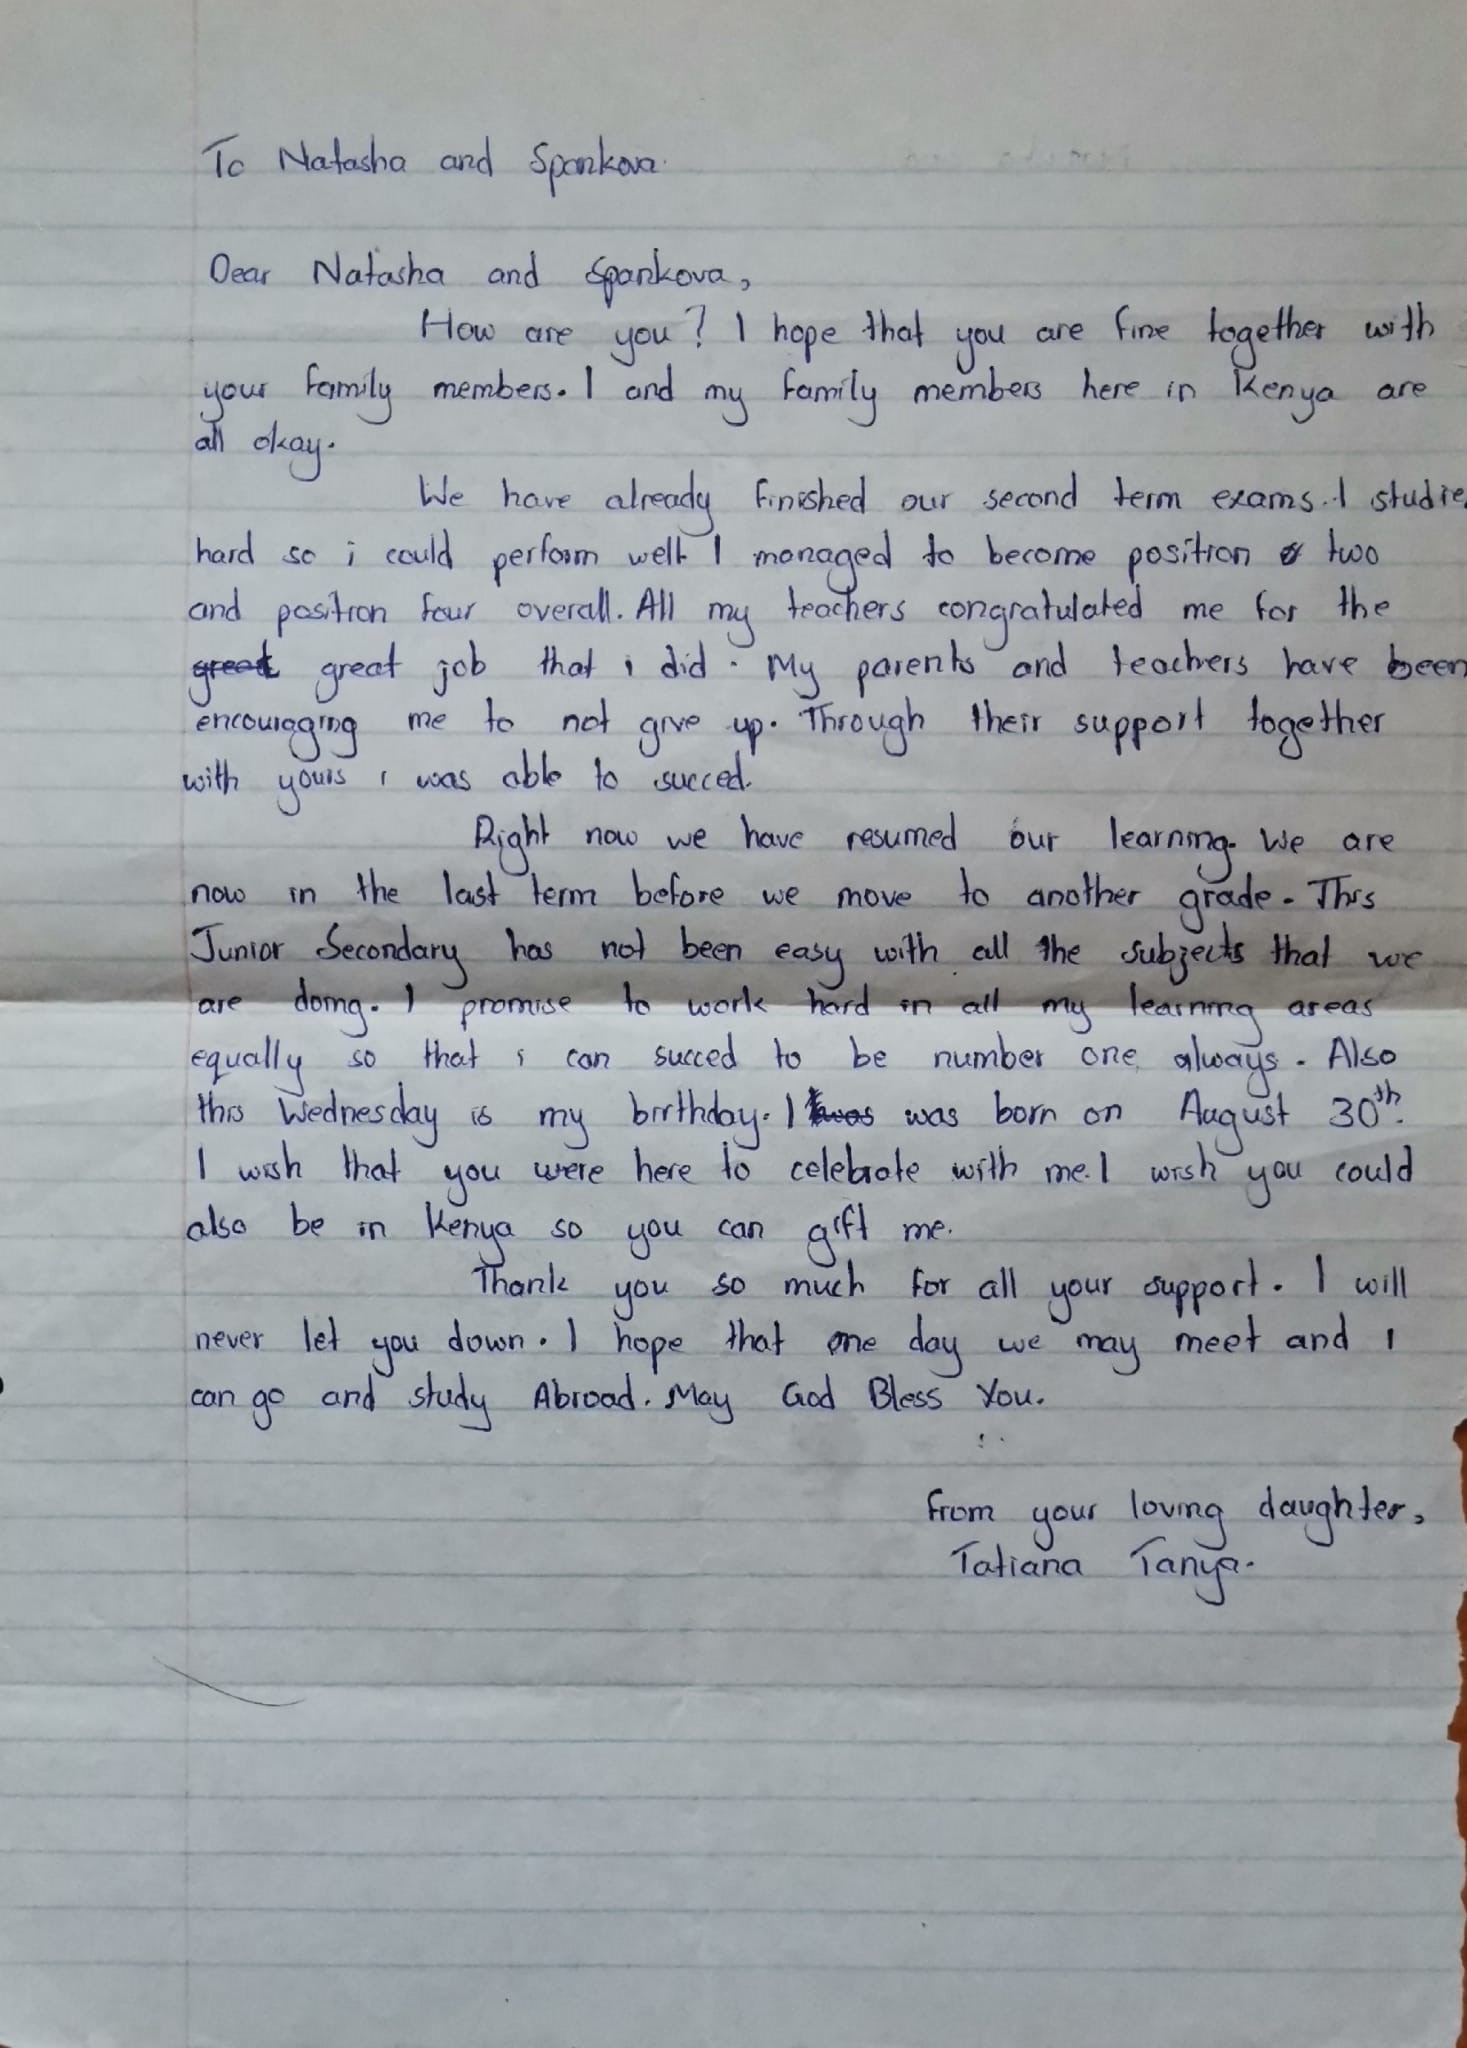 To Natasha and Spankova.
Dear Natasha and Spankova,
How are you? I hope that you are fine together with
your family members. I and my family members here in Kenya are
all okay.
We have already finished our second term exams. I studie
hard so i could perform well I managed to become position two
and position four overall. All my teachers congratulated me for the
great great job that i did. My parents and teachers have been
encouraging me to not give up. Through their support together
with yours i was able to succed.
Right now we have resumed our learning. We are
now in the last term before we move to another grade. This
Junior Secondary has not been easy with all the subjects that we
are doing. I promise to work hard in all my learning areas
equally so that i can succed to be number one always. Also
this Wednesday is my birthday. I was was born on August 30th.
I wish that you were here to celebrate with me. I wish you could
also be in Kenya so you can gift me.
Thank you so much for all your support. I will
never let you down. I hope that one day we may meet and I
can go and study Abroad. May God Bless You.
From your loving daughter,
Tatiana Tanya.